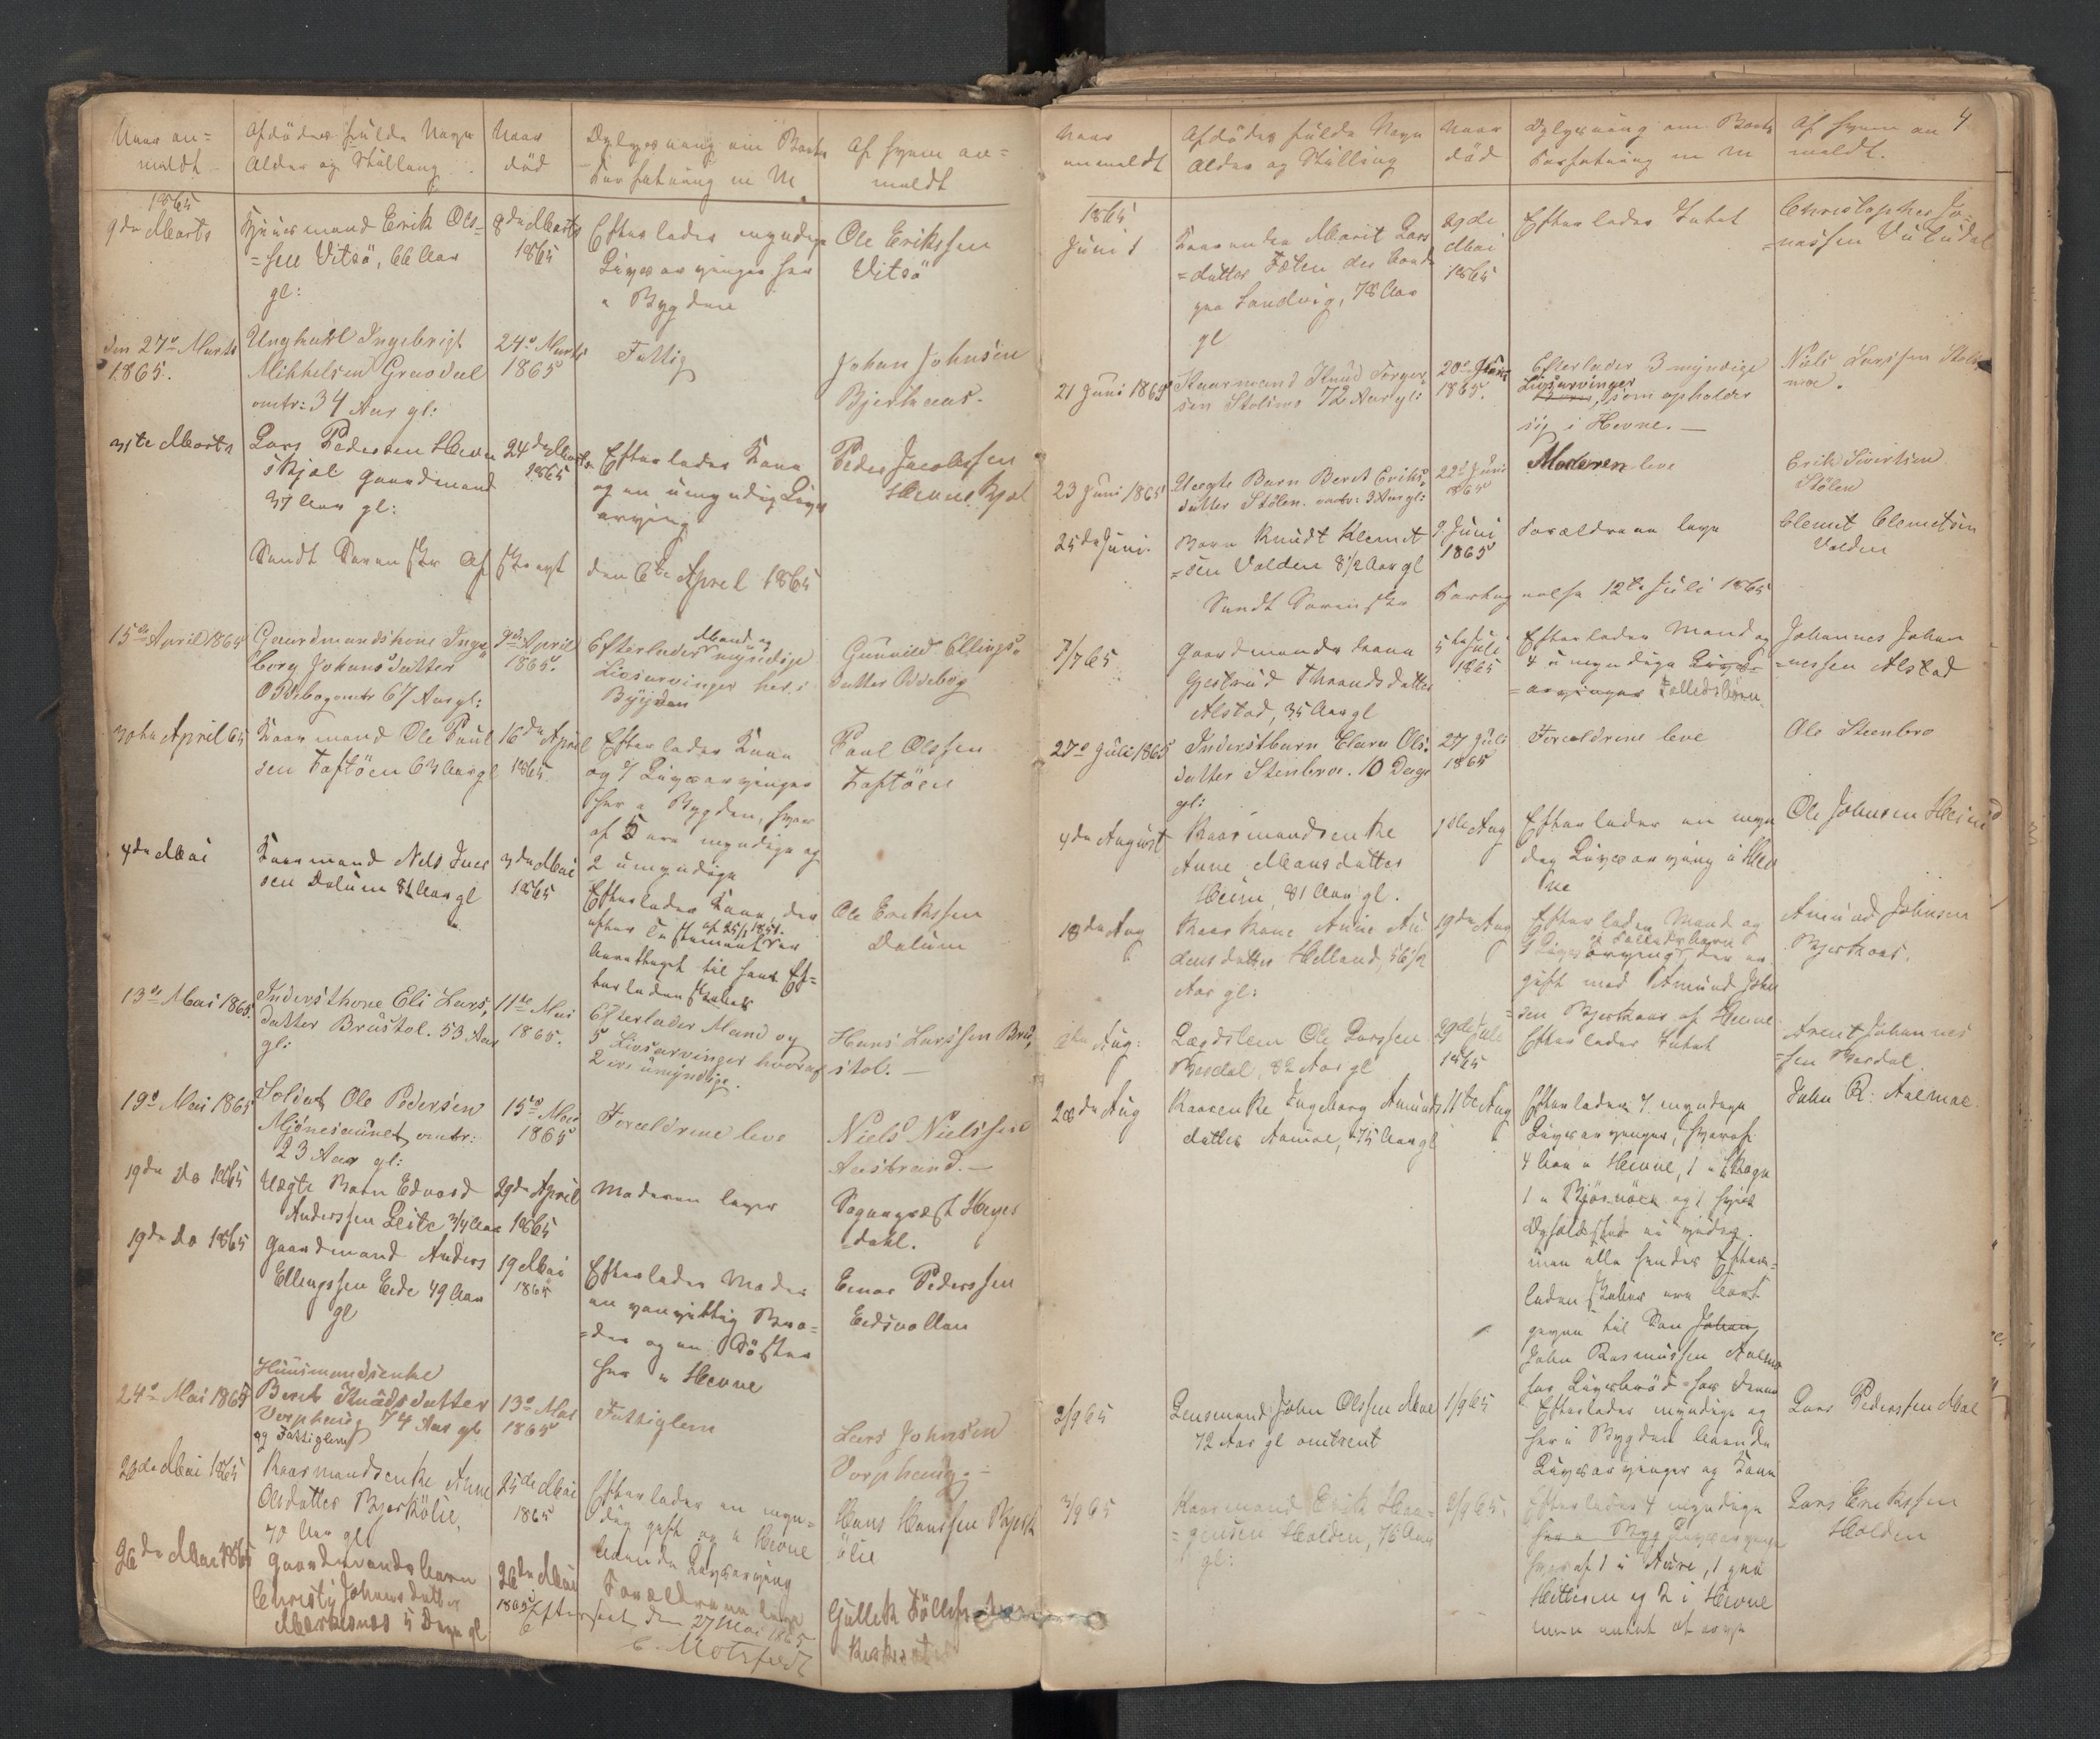 Naar an=
meldt
Afdödes fulde Navn
Alder og Stilling
Naar
död
Oplysning om Boets
Forfatning m M
Af hvem an=
meldt
1865
9de Marts
Huusmand Erik Ols=
=sen Vitsö, 66 Aar
gl:
8de Marts
1865
Efterlader myndige
Livsarvinger her
i Bygden
Ole Erikssen
Vitsö
den 27de Marts
1865.
Ungkarl Ingebrigt
Mikkelsen Graodal
omtr: 34 Aar gl:
24de Marts
1865
Fattig
Johan Johnsen
Bjerkaas.
31te Marts
Lars Pedersen Hevne
skjel Gaardmand
37 Aar gl:
24de Marts
1865
Efterlader Kone
og en umyndig Livs
arving
Peder Jacobssen
Hevneskjel
Sendt Sorenskr Af Skrevet den 6te April 1865
15de April 1865
Gaardmandskone Inge
borg Johansdatter
Oddebog omtr 67 Aar gl:
9de April
1865.
Efterlader Mand og myndige
Livsarvinger her i
Bygden
Gunnild Ellings
datter Oddebog
30te April 65
Kaarmand Ole Paul
sen Taftöen 63 Aar gl
16de April
1865.
Efterlader Kone
og 7 Livsarvinger
her i Bygden, hvor
af 5 ere myndige og
2 umyndige
Paul Olssen
Taftöen
4de Mai
Kaarmand Nels Iver
sen Dalum 82 Aar gl
3de Mai
1865
Efterlader Kone, der
efter Testament af 25/1 1851 er
berettiget til hans Ef=
terladenskaber
Ole Erikssen
Dalum
13de Mai 1865.
Inderstkone Eli Lars
datter Brustöl. 53 Aar
gl:
11te Mai
1865.
Efterlader Mand og
5 Livsarvinger hvoraf
2 ere umyndige.
Hans Larssen Bru
stöl.
19de Mai 1865
Soldat Ole Pedersen
Mjönesaunet omtr:
23 Aar gl:
15de Mai
1865
Forældrene leve
Niels Nielssen
Ausbrand.
19de Do 1865
Uægte Barn Edvard
Anderssen Leite 3/4 Aar
29de April
1865
Moderen lever
Sogneprest Heyer
dahl.
19de Do 1865
Gaardmand Anders
Ellingssen Eide 49 Aar
gl
19 Mai
1865
Efterlader Moder
en vanvittig Bro=
=der og en Söster
her i Hevne
Einar Pederssen
Eidsvollan
24de Mai 1865
Huusmandsenke
Berit Knudsdatter
Vorphaug 74 Aar gl
og Fattiglem
13de Mai
1865
Fattiglem
Lars Johnsen
Vorphaug.
26de Mai 1865
Kaarmandsenke Anne
Olsdatter Bjerkölie,
70 Aar gl
25de Mai
1865
Efterlader en myn=
dig gift og i Hevne
boende Livsarving
Hans Hanssen Bjerk
ölie
26de Mai 1865
Gaardmandsbarn
Christy Johansdatter
Mærkesnes 5 Dage gl
26de Mai
1865
Forældrene leve
Gullek
Efterseet den 27 Mai 1865
C. Motzfeldt
4
Naar
anmeldt
Afdödes fulde Navn
Alder og Stilling
Naar
död
Oplysning om Boets
Forfatning m M
Af hvem an
meldt.
1865
Juni 1
Kaarenke Marit Lars
=datter Fæten der boede
paa Sandvig, 78 Aar
gl
29de
Mai
1865
Efterlader Intet
Christopher Jo=
=nassen Vuludal
21 Juni 1865
Kaarmand Knud Torger
sen Stolsmo 72 Aar gl:
20de Juni
1865.
Efterlader 3 myndige
Livsarvinger, som opholder
sig i Hevne.
Niels Larssen Stols
moe.
23 Juni 1865
Uægte Barn Berit Eriks
datter Stölen. omtr: 3 Aar gl:
22de Juni
1865
Moderen leve
Erik Sivertsen
Stölen
25de Juni.
Barn Knudt Klemet
=sen Valden 8 1/2 Aar gl
9 Juni
1865
Forældrene leve
Clemet Clemetsen
Valden
Sendt Sorenskr Fortegnelse 12te Juli 1865
7/7 65.
Gaardmands Kone
Gjertrud Throndsdatter
Alstad, 35 Aar gl
5te Juli
1865
Efterlader Mand og
4 umyndige Livs=
=arvinger Fællesbörn
Johannes Johan
=nessen Alstad
27de Juli 1865
Inderstbarn Elara Ols
datter Stenbroe. 10 Dage
gl:
27 Juli
1865
Forældrene leve
Ole Steenbro
4de August
Kaarmandsenke
Anne Mansdatter
Heim, 81 Aar gl.
1ste Aug
Efterlader en myn
dig Livsarving i Hev
ne
Ole Johnsen Heim
18de Aug
Kaarkone Anne Au
densdatter Helland, 56 1/2
Aar gl:
19de Aug
Efterlader Mand og
1 Livsarving Fællesbarn der er
gift med Amund John
=sen Bjerkaas af Hevne
Amund Johnsen
Bjerkaas.
Aug:
Lægdslem Ole Larssen
Bosdal, 82 Aar gl
29de Juli
1865
Efterlader Intet
Arent Johannes
=sen Bosdal.
28de Aug
Kaarenke Ingeborg Amunds
datter Aamoe, 75 Aar gl
11te Aug
Efterlader 7 myndige
Livsarvinger, hvoraf
4 bor i Hevne, 1 i Skogn
1 i Bjørnör og 1 hvis
Opholdssted er uvidst.
men alle hendes Efter=
ladenskaber ere bort
given til Sön Johan
John Rasmussen Aalmo
for Livsbröd hos denne
John R: Aalmoe.
2/9 65
Lensmand John Olssen Moe
72 Aar gl omtrent
1/9 65
Efterlader myndige og
her i Bygden boende
Livsarvinger og Kone
Lars Pederssen Moe
3/9 65
Kaarmand Erik Haa=
=gensen Holden, 76 Aar
gl:
2/9 65.
Efterlader 4 myndige
her i Byg Livsarvinger
hvoraf 1 i Aure, 1 paa
Hitteren og 2 i Hevne
men intet at arve
Lars Erikssen
Holden